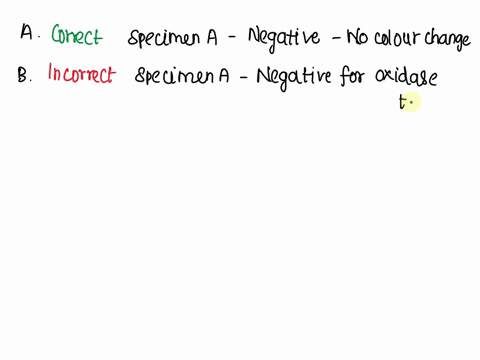 A. Correct Specimen A - Negative - No colour change
B. Incorrect Specimen A - Negative for oxidase
t